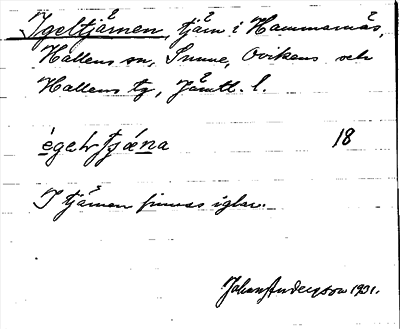 Igeltjärnen, tjärn i Hammarnäs,
Hallens sn, Sunne, Ovikens och
Hallens tg, Jämtl. l.
égeltjæ̀na 18
I tjärnen finnas iglar.
Johan Anderson 1931.